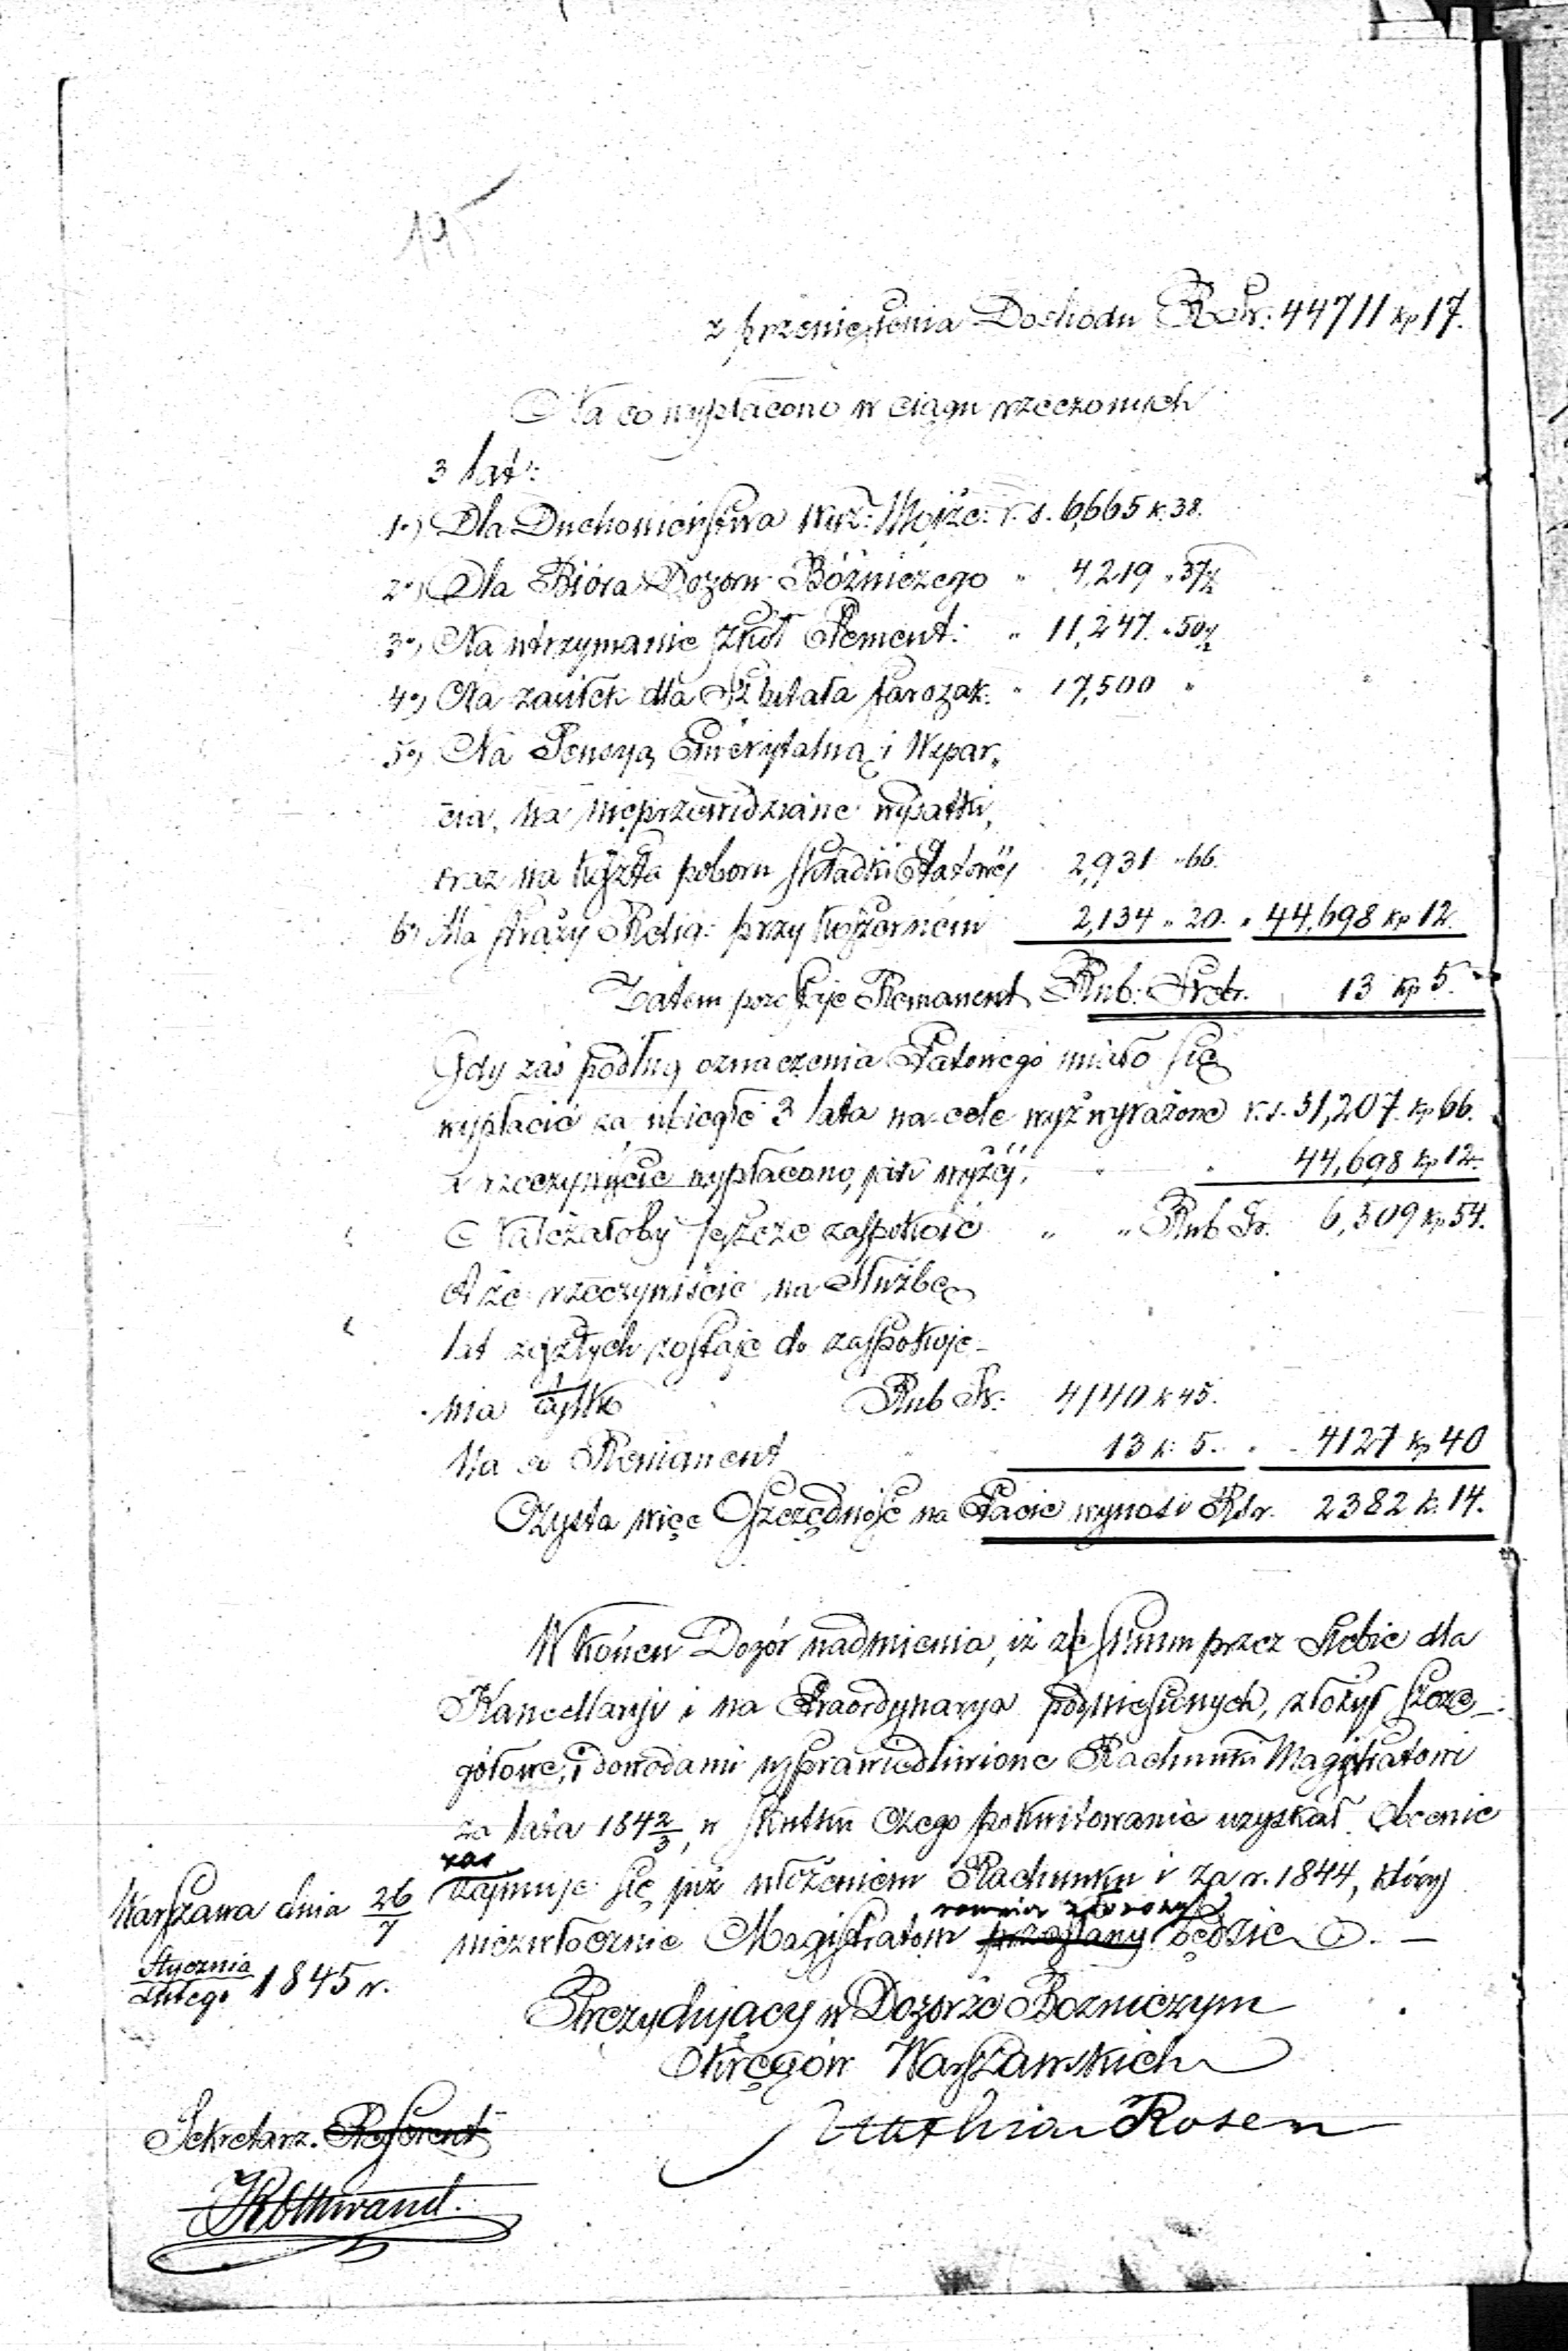 19
z przeniesienia Dochodu Rsr: 44711 kp 17.
Na co wypłacono w ciągu rzeczonych
3 lat:
1o) Dla Duchowieństwa Wyz: Mojże: r. s. 6,665 k. 38.
2o) Dla Bióra Dozoru Bóżniczego " 4,219 " 37½
3o) Na utrzymanie Szkół Element: " 11,247 " 50½
4o) Na zasiłek dla Szpitala Starozak. " 17,500 "
5o) Na Pensyą Emerytalną i Wspar„
cia, na nieprzewidziane wydatki,
oraz na koszta poboru składki Etatowéj 2,931 " 66.
6o) Na straży Relig: przy koszernem 2,134 " 20. " 44,698 kp 12.
Zatem pozostaje Remanent Rub: Srebr. 13 kp 5.
Gdy zaś podług oznaczenia Etatowego miało się
wypłacić za ubiegłe 3 lata na cele wyż wyrażone r. s. 51,207 kp 66.
a rzeczywiście wypłacono, jak wyżéj, " " 44,698 kp 12.
Należałoby jeszcze zaspokoić " " Rub Sr. 6,509 kp 54.
A że rzeczywiście na Służbę
lat zeszłych zostaje do zaspokoje-
nia tylko Rub Sr: 4140 k 45.
Na a Remanent " " 13 k: 5. " - 4127 kp 40
Czysta więc Oszczędność na Etacie wynosi Rsr. 2382 k. 14.
W końcu Dozór nadmienia, iż ze summ przez Siebie dla
Kancellaryi i na Extraordynarya podniesionych, złożył szcze-
gółowe, i dowodami usprawiedliwione Rachunki Magistratowi
za lata 1842/3, w skutku czego pokwitowanie uzyskał. Obecnie
zaś
zajmuje się już ułożeniem Rachunku i za r. 1844, który
również złożony
niezwłocznie Magistratowi przesłany będzie. —
Warszawa dnia 26/7
Stycznia/Lutego 1845 r.
Prezydujący w Dozorze Bozniczym
Okręgów Warszawskich
Mathias Rosen
Sekretarz. Referent
Rothwand.